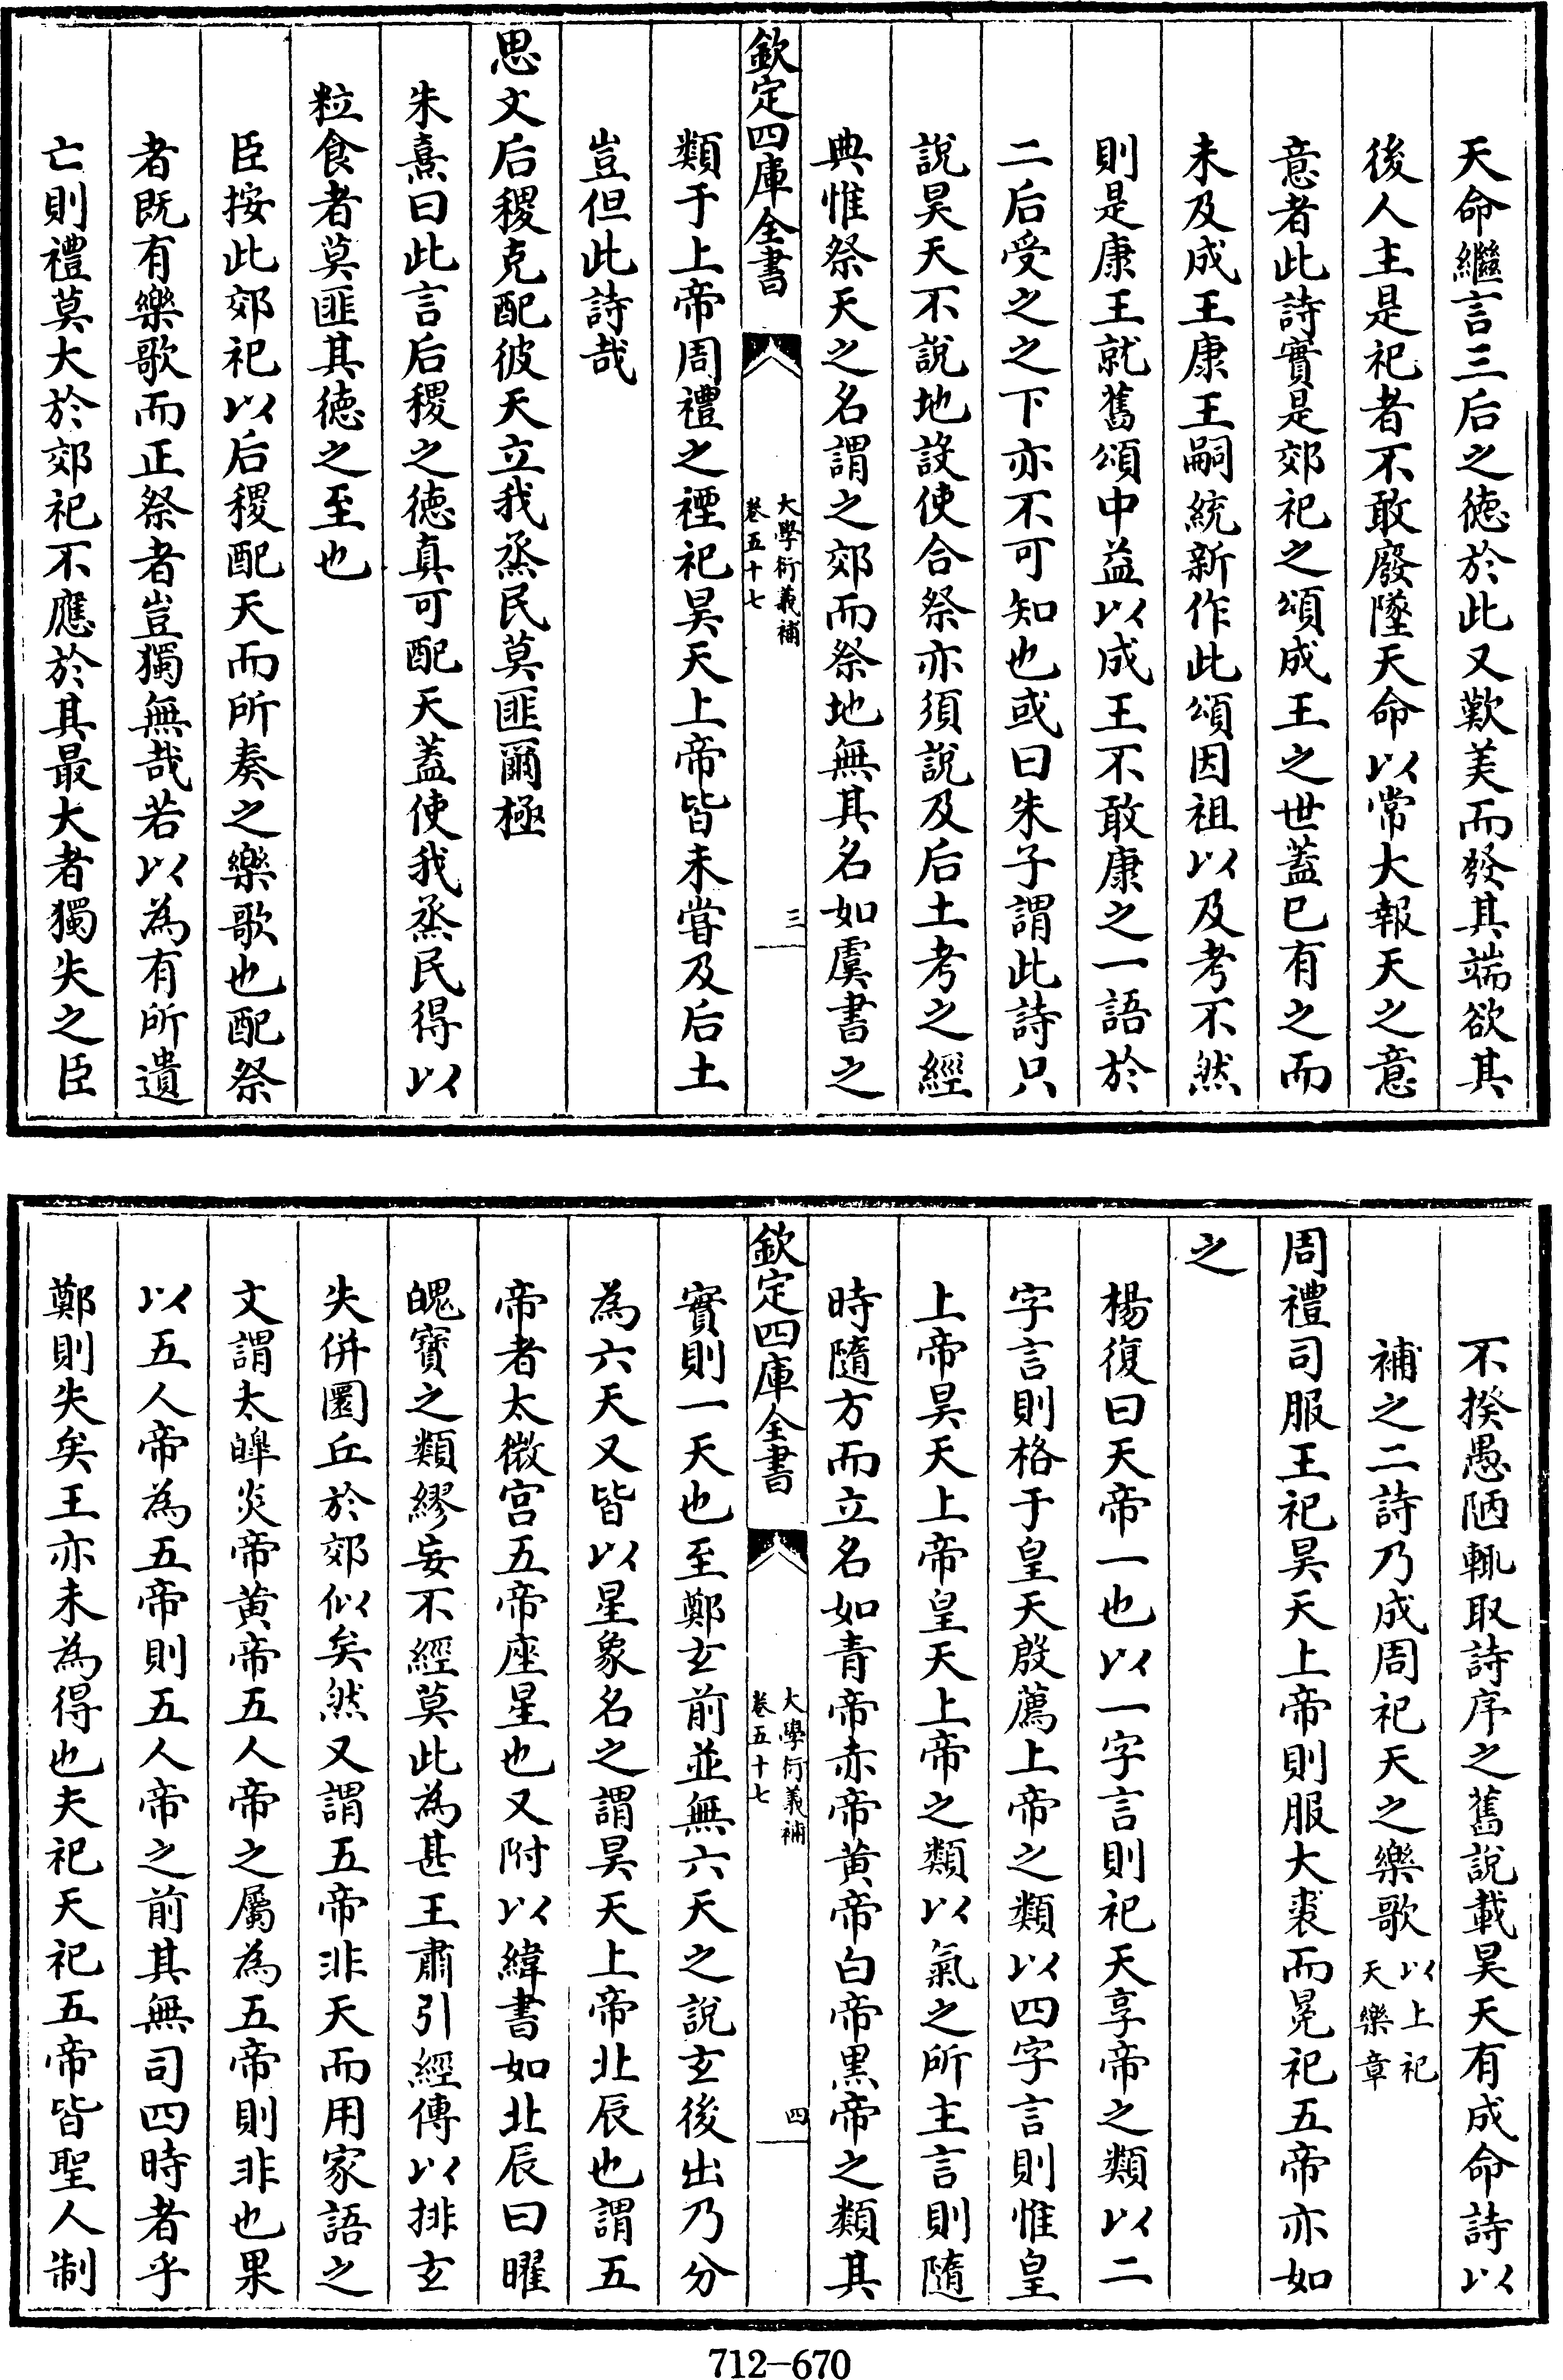 天命繼言三后之德於此又歎美而發其端欲其
後人主是祀者不敢廢墜天命以常大報天之意
意者此詩實是郊祀之頌成王之世蓋已有之而
未及成王康王嗣統新作此頌因祖以及考不然
則是康王就舊頌中益以成王不敢康之一語於
二后受之之下亦不可知也或曰朱子謂此詩只
說昊天不說地設使合祭亦須說及后土考之經
典惟祭天之名謂之郊而祭地無其名如虞書之
欽定四庫全書
大學衍義補
卷五十七
三
類于上帝周禮之禋祀昊天上帝皆未嘗及后土
豈但此詩哉
思文后稷克配彼天立我烝民莫匪爾極
朱熹曰此言后稷之德真可配天蓋使我烝民得以
粒食者莫匪其德之至也
臣按此郊祀以后稷配天而所奏之樂歌也配祭
者既有樂歌而正祭者豈獨無哉若以為有所遺
亡則禮莫大於郊祀不應於其最大者獨失之臣
不揆愚陋輒取詩序之舊說載昊天有成命詩以
補之二詩乃成周祀天之樂歌以上祀天樂章
周禮司服王祀昊天上帝則服大裘而冕祀五帝亦如
之
楊復曰天帝一也以一字言則祀天享帝之類以二
字言則格于皇天殷薦上帝之類以四字言則惟皇
上帝昊天上帝皇天上帝之類以氣之所主言則隨
時隨方而立名如青帝赤帝黃帝白帝黑帝之類其
欽定四庫全書
大學衍義補
卷五十七
四
實則一天也至鄭玄前並無六天之說玄後出乃分
為六天又皆以星象名之謂昊天上帝北辰也謂五
帝者太微宮五帝座星也又附以緯書如北辰曰曜
魄寶之類繆妄不經莫此為甚王肅引經傳以排玄
失併圜丘於郊似矣然又謂五帝非天而用家語之
文謂太皞炎帝黃帝五人帝之屬為五帝則非也果
以五人帝為五帝則五人帝之前其無司四時者乎
鄭則失矣王亦未為得也夫祀天祀五帝皆聖人制
712-670